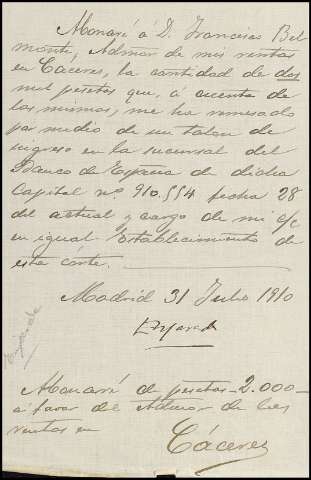 Abonaré á D. Francisco Bel
monte, Admor de mis rentas
en Cáceres, la cantidad de dos
mil pesetas que, á cuenta de
las mismas, me ha remesado
por medio de un talon de
ingreso en la sucursal del
Banco de España de dicha
Capital nº 910.554 fecha 28
del actual y cargo de mi c/c
en igual Establecimiento de
esta córte.
Madrid 31 Julio 1910
Abonaré de pesetas 2.000
á favor del Admor de las
rentas en
Cáceres